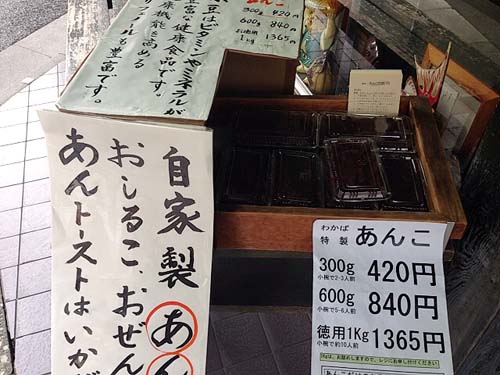 豆はビタミンやミネラルが
豊富な健康食品です。
康機能を高める
ノールも豊富です。
あんこ
300g 420円
600g 840円
お徳用
1kg 1365円
自家製
あん
おしるこ、おぜん
あんトーストはいか
わかば
特製
あんこ
300g
小椀で2-3人前
420円
600g
小椀で5-6人前
840円
徳用1Kg
小椀で約10人前
1365円